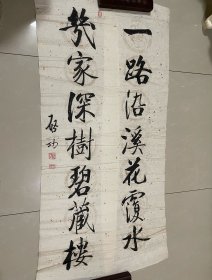 一路沿溪花覆水
幾家深樹碧藏樓
啟功